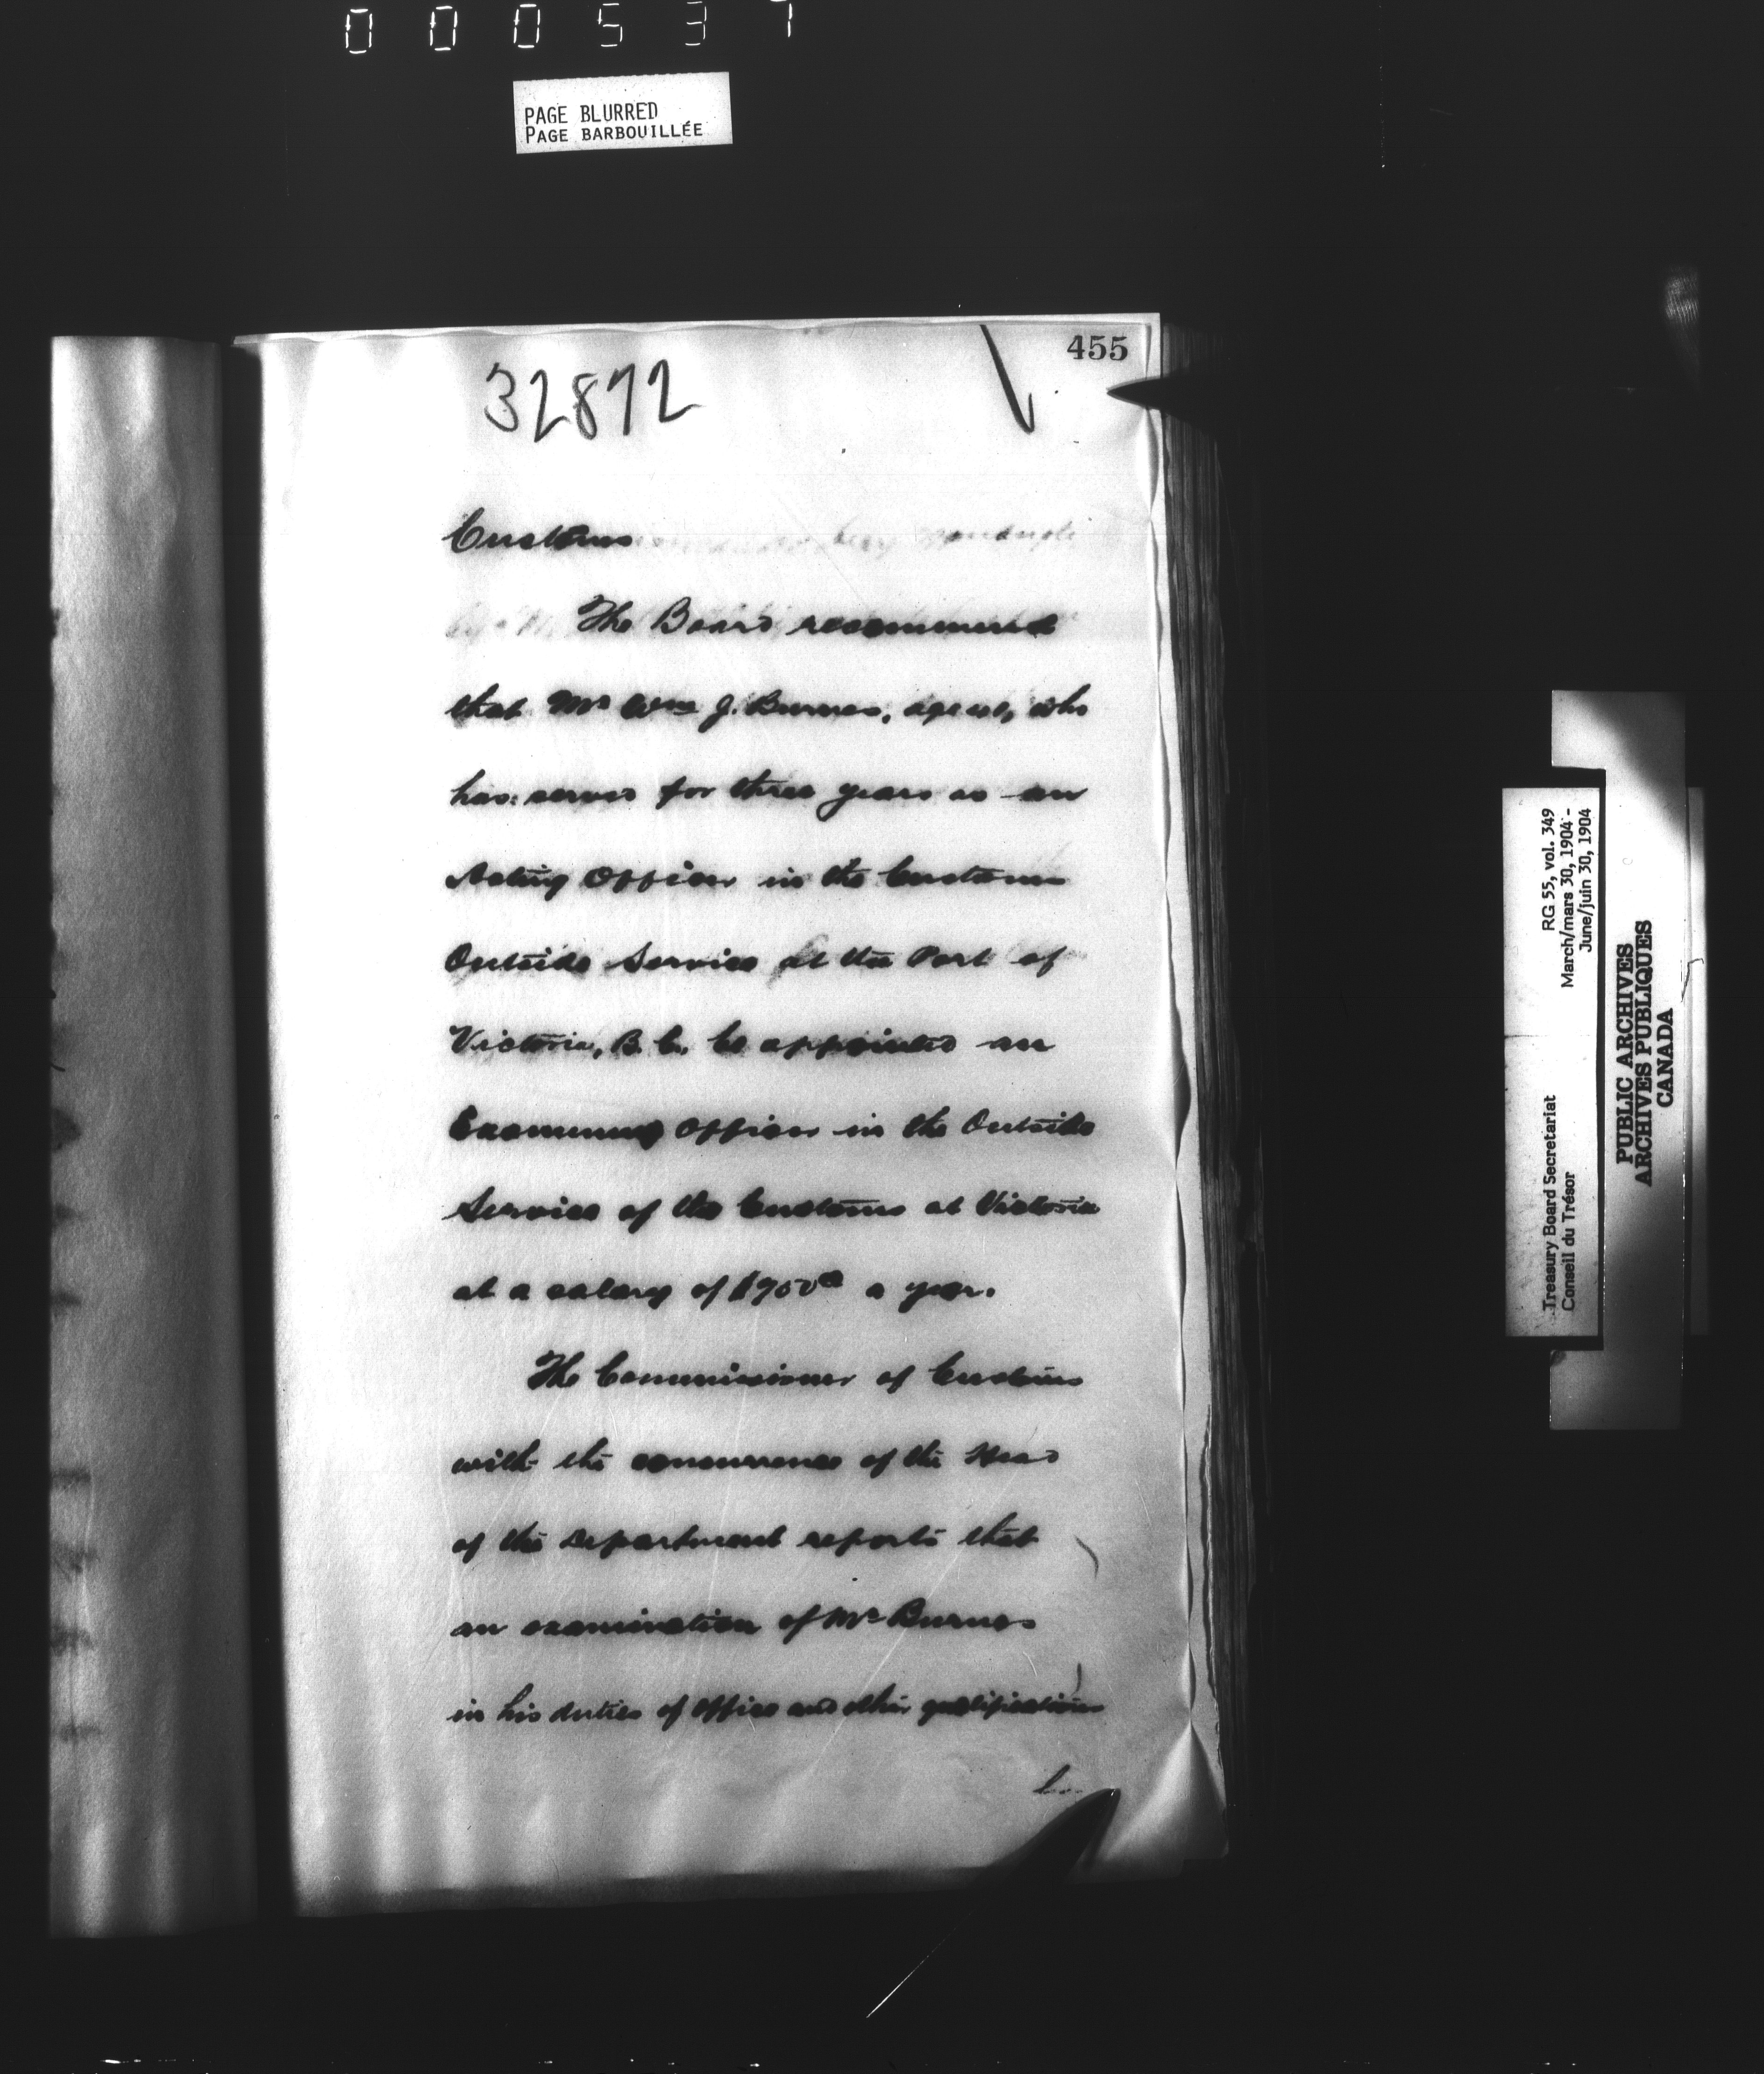 000537
PAGE BLURRED
PAGE BARBOUILLÉE
455
32872
Customs
The Board recommend
that Mr Wm J. Burnes, who
has served for three years as an
Acting Officer in the Customs
Outside Service at the Port of
Victoria, B.C. be appointed an
Examining Officer in the Outside
Service of the Customs at Victoria
at a salary of $900 00 a year.
The Commissioner of Customs
with the concurrence of the Head
of the Department reports that
an examination of Mr Burnes
in his duties of office and other qualifications
Treasury Board Secretariat RG 55, vol. 349
Conseil du Trésor March/mars 30, 1904 -
June/juin 30, 1904
PUBLIC ARCHIVES
ARCHIVES PUBLIQUES
CANADA